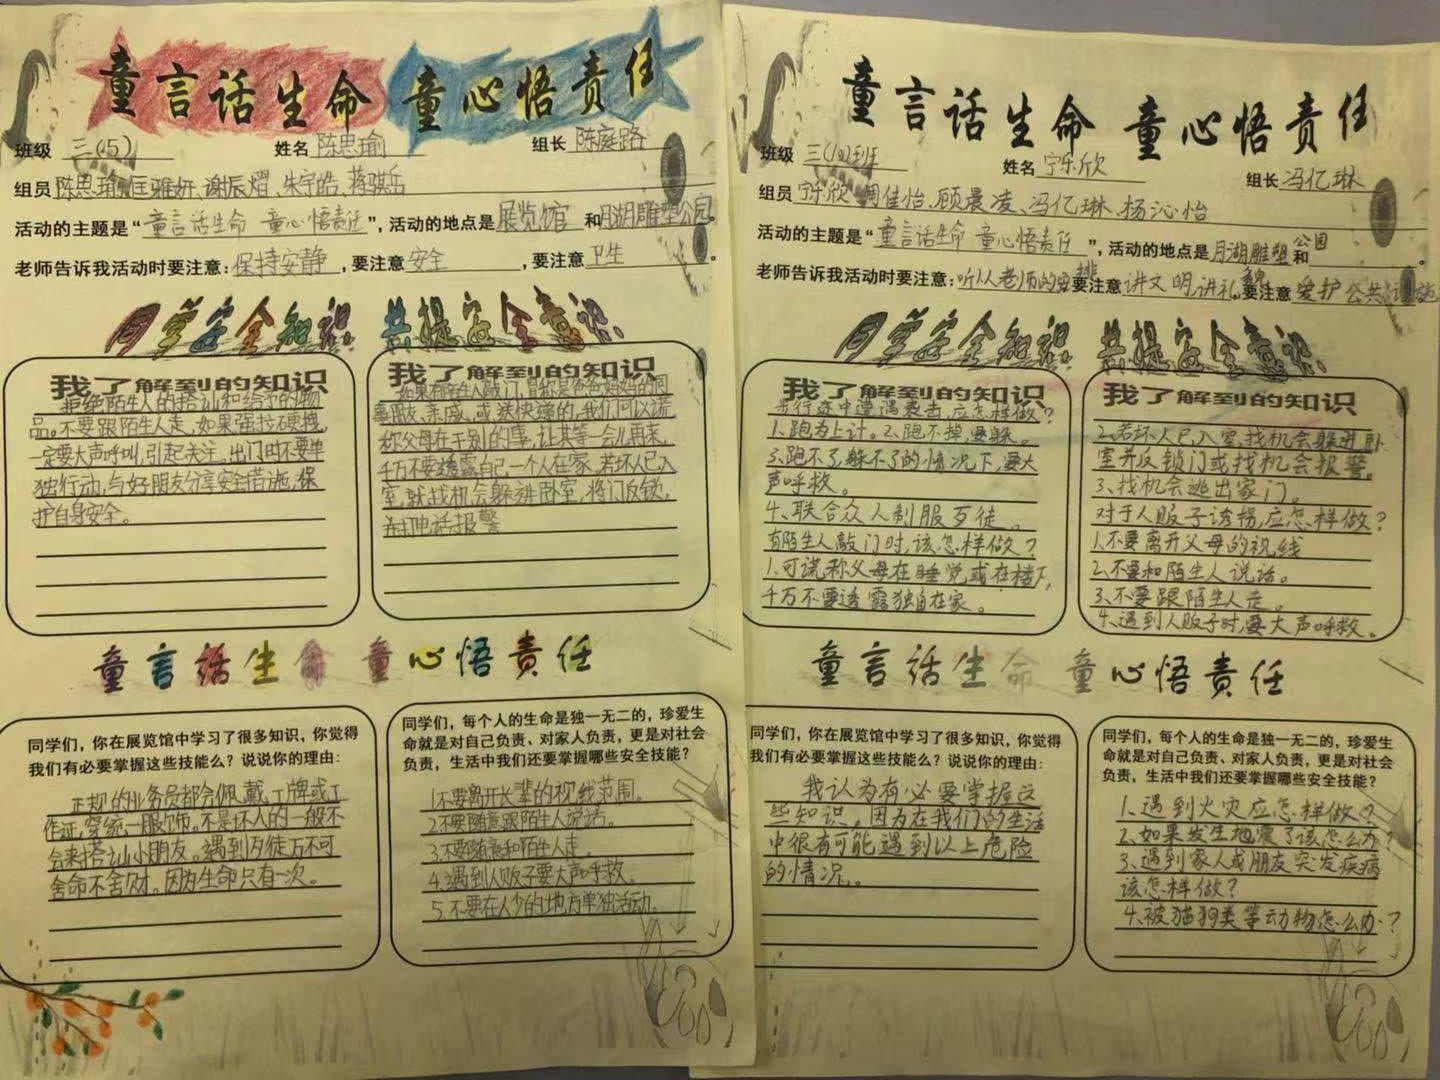 童言话生命 童心悟责任
班级 三(5) 姓名 陈思瑜 组长 陈庭路
组员 陈思瑜 匡雅妍、谢辰熠、朱宇皓、蒋骐岳
活动的主题是“童言话生命 童心悟责任”，活动的地点是 展览馆 和月湖雕塑公园。
老师告诉我活动时要注意：保持安静，要注意 安全，要注意 卫生。
同掌安全知识 共提安全意识
我了解到的知识
拒绝陌生人的搭讪和给予的物
品。不要跟陌生人走，如果强拉硬拽，
一定要大声呼叫，引起关注。出门时不要单
独行动，与好朋友分享安全措施，保
护自身安全。
我了解到的知识
如果有陌生人敲门，自称是爸爸妈妈的同
事朋友、亲戚，或送快递的，我们可以谎
称父母在干别的事，让其等一会儿再来，
千万不要透露自己一个人在家，若坏人已入
室，就找机会躲进卧室，将门反锁，
并打电话报警
童言话生命 童心悟责任
同学们，你在展览馆中学习了很多知识，你觉得
我们有必要掌握这些技能么？说说你的理由：
正规的业务员都会佩戴工牌或工
作证，穿统一服饰。不是坏人的一般不
会来搭讪小朋友。遇到歹徒万不可
舍命不舍财。因为生命只有一次。
同学们，每个人的生命是独一无二的，珍爱生
命就是对自己负责、对家人负责，更是对社会
负责，生活中我们还要掌握哪些安全技能？
1.不要离开长辈的视线范围。
2.不要随意跟陌生人说话。
3.不要随意和陌生人走。
4.遇到人贩子要大声呼救。
5.不要在人少的地方单独活动。
童言话生命 童心悟责任
班级 三(10)班 姓名 宁乐欣 组长 冯亿琳
组员 宁乐欣 周佳怡、顾晨凌、冯亿琳、杨沁怡
活动的主题是“童言话生命 童心悟责任”，活动的地点是 月湖雕塑公园和。
老师告诉我活动时要注意：听从老师的安排要注意 讲文明，讲礼貌，要注意 爱护公共设施
同掌安全知识 共提安全意识
我了解到的知识
步行途中遭遇袭击，应怎样做？
1、跑为上计。2、跑不掉，要躲。
3、跑不了，躲不了的情况下，要大
声呼救。
4、联合众人制服歹徒。
有陌生人敲门时，该怎样做？
1、可谎称父母在睡觉或在楼下，
千万不要透露独自在家。
我了解到的知识
2、若坏人已入室，找机会躲进卧
室并反锁门或找机会报警。
3、找机会逃出家门。
对于人贩子诱拐，应怎样做？
1、不要离开父母的视线
2、不要和陌生人说话。
3、不要跟陌生人走。
4、遇到人贩子时，要大声呼救。
童言话生命 童心悟责任
同学们，你在展览馆中学习了很多知识，你觉得
我们有必要掌握这些技能么？说说你的理由：
我认为有必要掌握这
些知识。因为在我们的生活
中很有可能遇到以上危险
的情况。
同学们，每个人的生命是独一无二的，珍爱生
命就是对自己负责、对家人负责，更是对社会
负责，生活中我们还要掌握哪些安全技能？
1、遇到火灾应怎样做？
2、如果发生地震了该怎么办？
3、遇到家人或朋友突发疾病
该怎样做？
4、被猫狗类等动物怎么办？